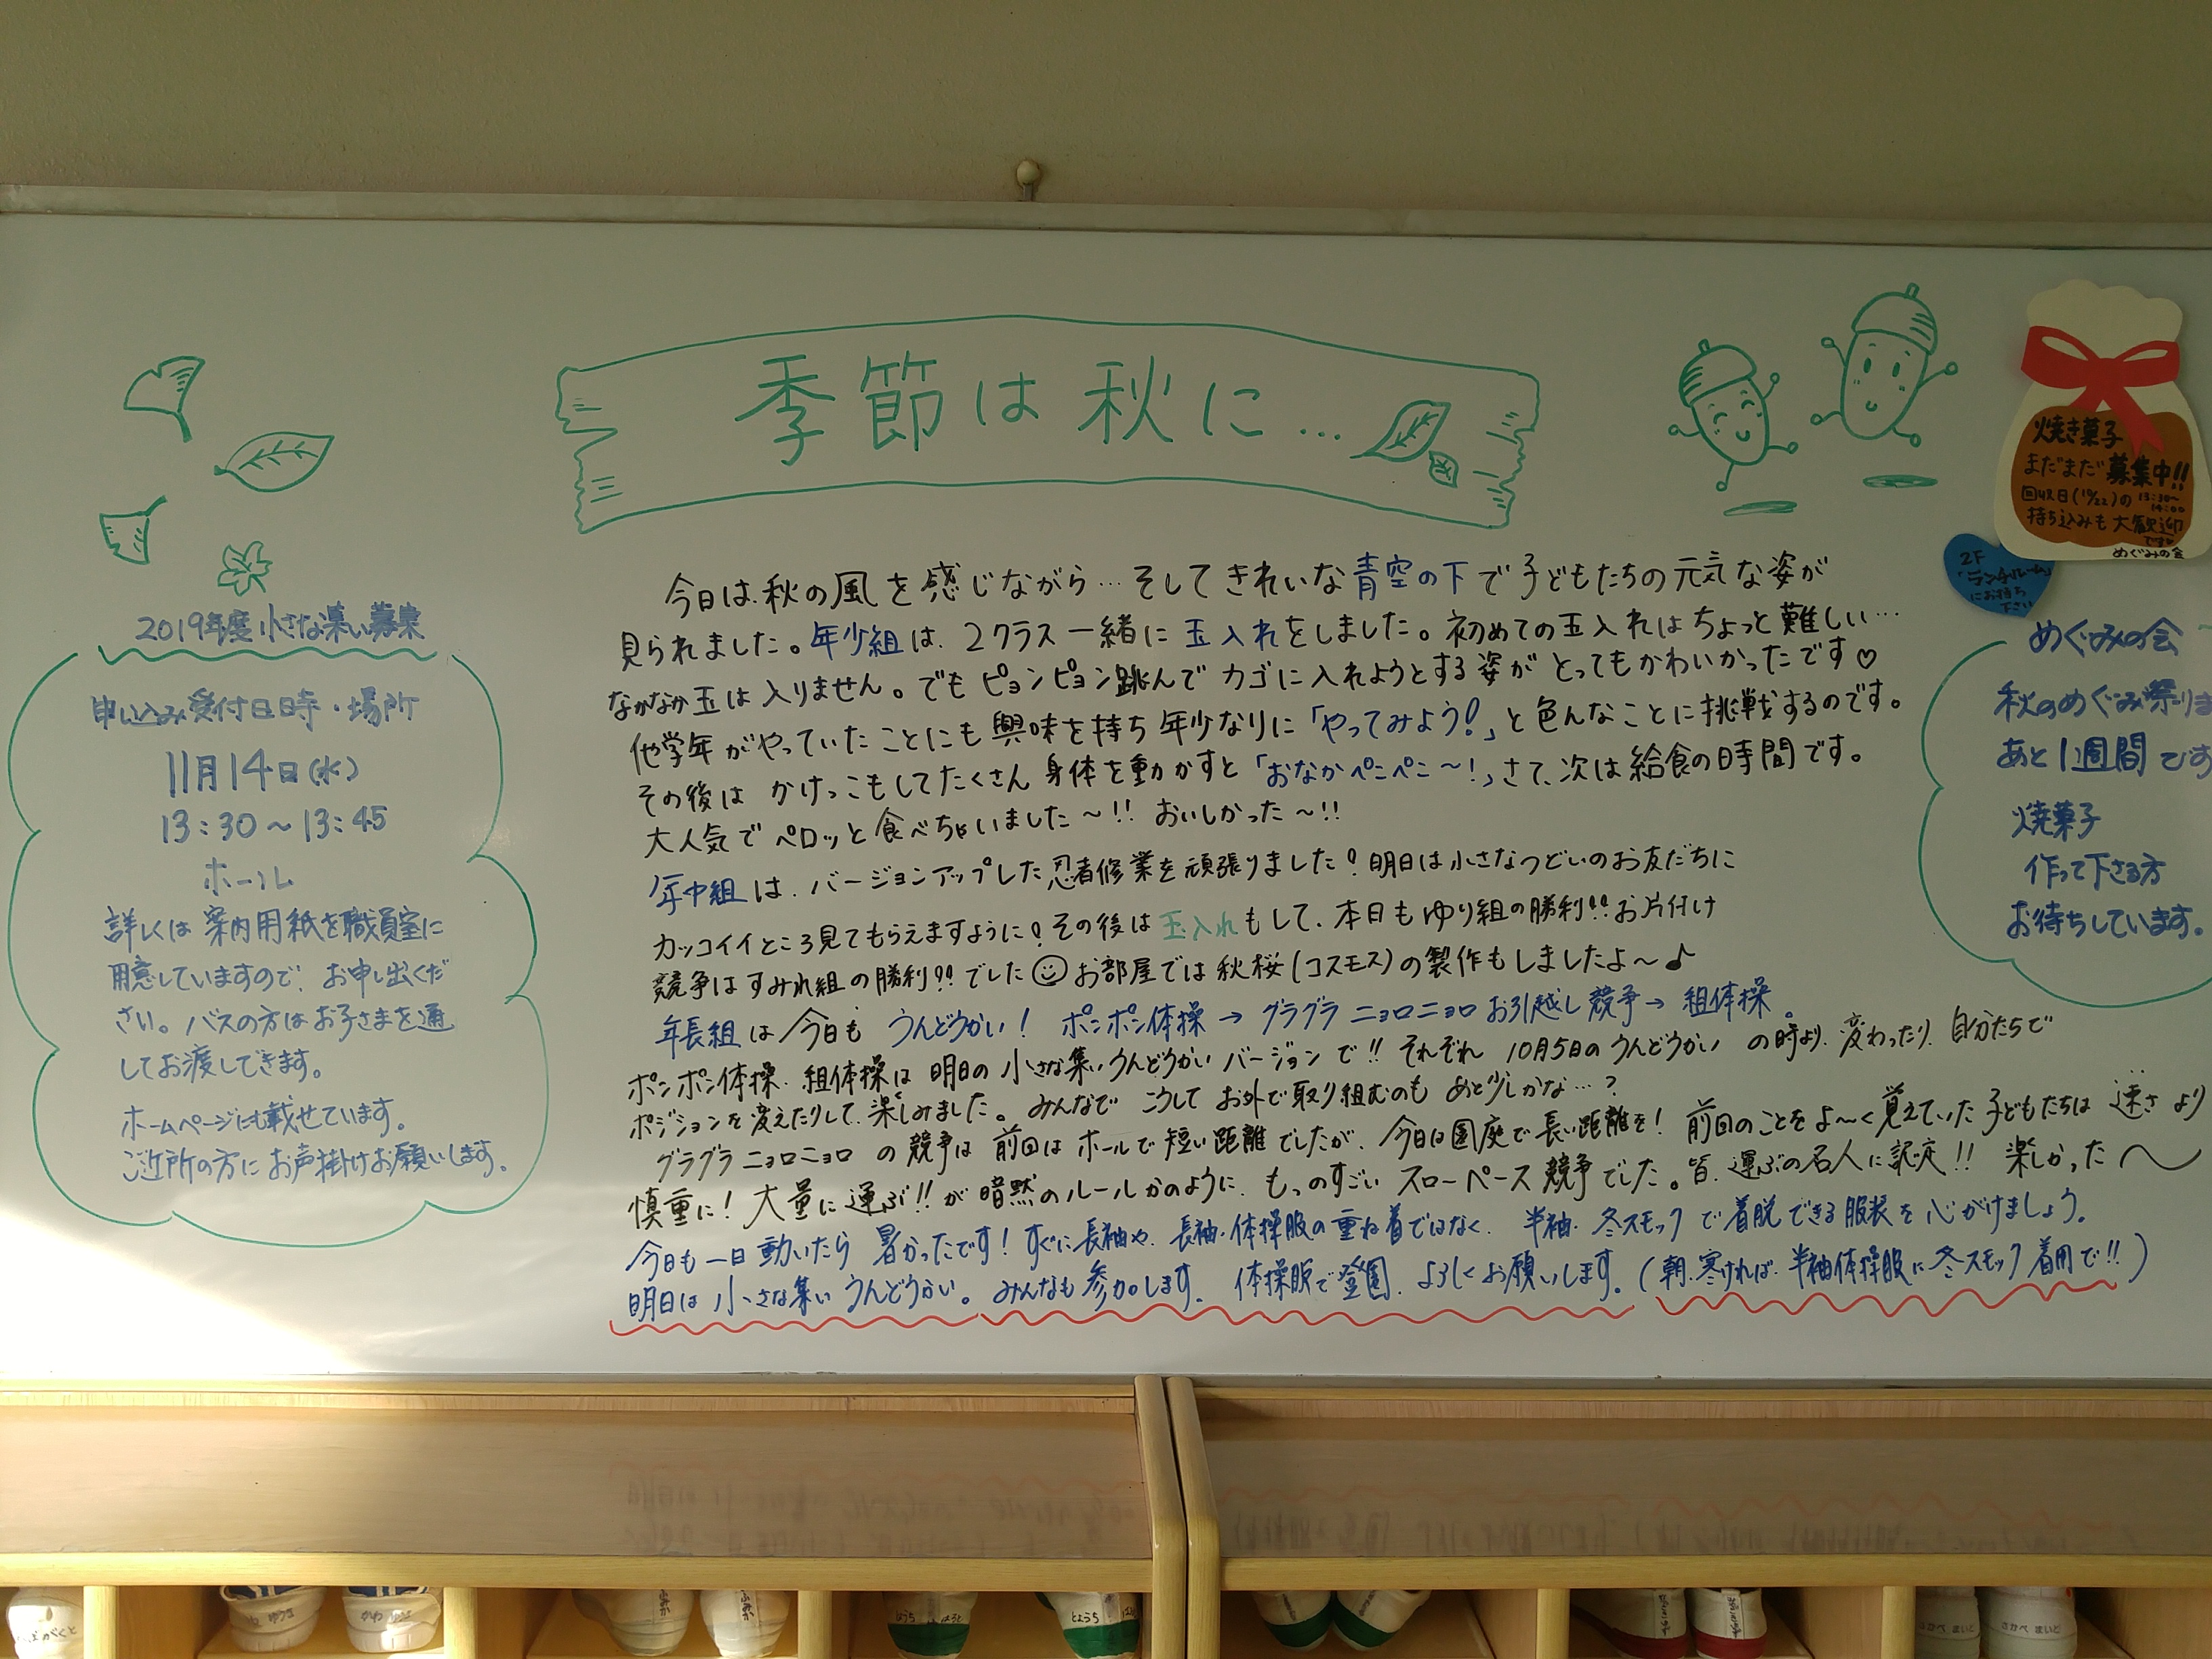 季節は秋に…
2019年度 小さな集い募集
申し込み受付日時・場所
11月14日(水)
13:30〜13:45
ホール
詳しくは案内用紙を職員室に
用意していますので、お申し出くだ
さい。バスの方はお子さまを通
してお渡しできます。
ホームページにも載せています。
ご近所の方にお声掛けお願いします。
今日は、秋の風を感じながら…そしてきれいな青空の下で子どもたちの元気な姿が
見られました。年少組は、2クラス一緒に玉入れをしました。初めての玉入れはちょっと難しい…
なかなか玉は入りません。でもピョンピョン跳んでカゴに入れようとする姿がとってもかわいかったです♡
他学年がやっていたことにも興味を持ち年少なりに「やってみよう!」と色んなことに挑戦するのです。
その後はかけっこもしてたくさん身体を動かすと「おなかペこペこ〜!」さて、次は給食の時間です。
大人気でペロッと食べちゃいました〜!! おいしかった〜!!
年中組は、バージョンアップした忍者修業を頑張りました!明日は小さなつどいのお友だちに
カッコイイところ見てもらえますように!その後は玉入れもして、本日もゆり組の勝利!!お片付け
競争はすみれ組の勝利!!でした☺お部屋では秋桜(コスモス)の製作もしましたよ〜♪
年長組は今日も うんどうかい! ポンポン体操→グラグラニョロニョロお引越し競争→組体操。
ポンポン体操、組体操は明日の小さな集いうんどうかいバージョンで!!それぞれ10月5日のうんどうかいの時より、変わったり、自分たちで
ポジションを変えたりして、楽しみました。みんなでこうしてお外で取り組むのもあと少しかな…?
グラグラニョロニョロの競争は前回はホールで短い距離でしたが、今日は園庭で長い距離を!前回のことをよ〜く覚えていた子どもたちは速さより
慎重に!大量に運ぶ!!が暗黙のルールかのように、もっのすごいスローペース競争でした。皆、運ぶの名人に認定!!楽しかった〜
今日も一日動いたら暑かったです!すぐに長袖や、長袖・体操服の重ね着ではなく、半袖・冬スモックで着脱できる服装を心がけましょう。
明日は小さな集いうんどうかい。みんなも参加します。体操服で登園、よろしくお願いします。(朝、寒ければ、半袖体操服に冬スモック着用で!!)
焼き菓子
まだまだ募集中!!
回収日(10/22)の13:30〜14:00
持ち込みも大歓迎
です♡
めぐみの会
2F
「ランチルーム」
にお持ち
下さい
めぐみの会
秋のめぐみ祭りま
あと1週間です
焼菓子
作って下さる方
お待ちしています。
とょうち
とょうち
さかべ まいと
さかべ まいと